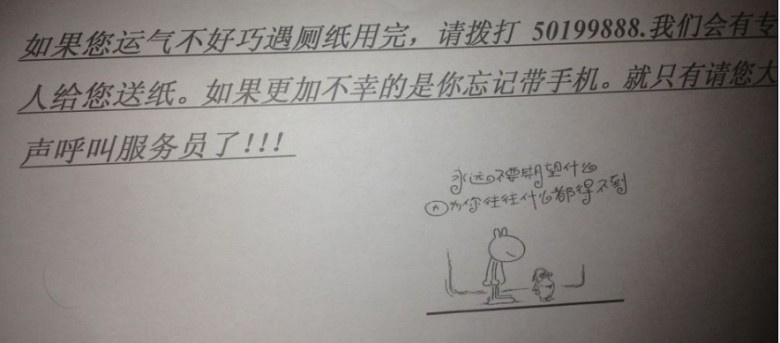 如果您运气不好巧遇厕纸用完，请拨打 50199888.我们会有专
人给您送纸。如果更加不幸的是你忘记带手机。就只有请您大
声呼叫服务员了!!!
永远不要期望什么
因为你往往什么都得不到